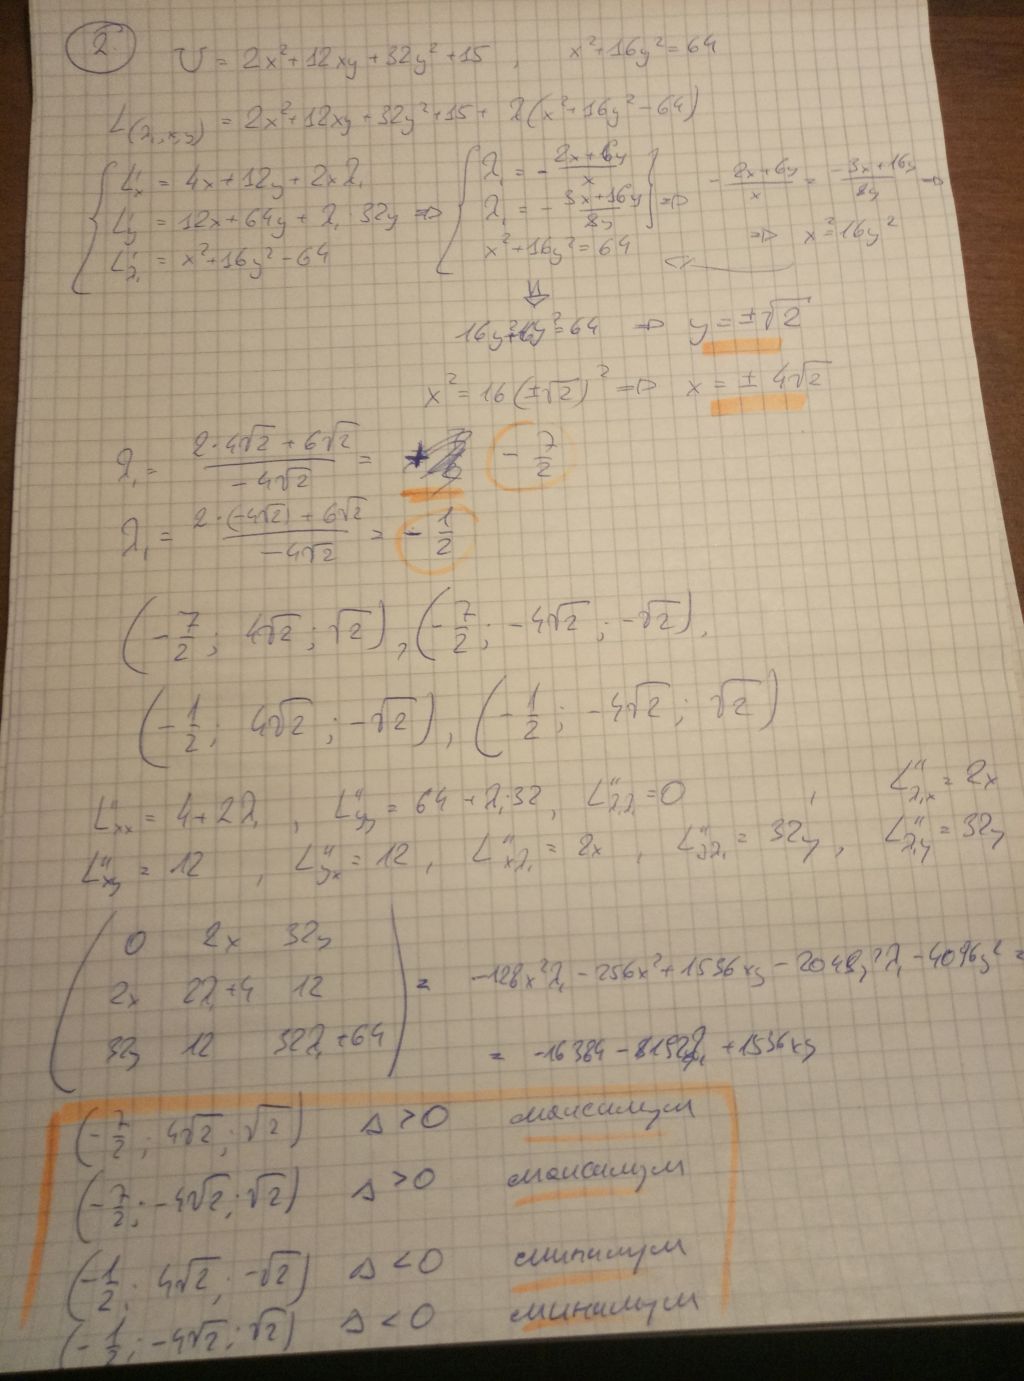 2.
U = 2x²+12xy+32y²+15 , x²+16y²=64
L(λ₁,x,y) = 2x²+12xy+32y²+15+ λ(x²+16y²-64)
{ L'x = 4x+12y+2xλ₁
L'y = 12x+64y+λ₁32y ⇒
L'λ₁ = x²+16y²-64
{ λ₁ = -(2x+6y)/x
λ₁ = -(3x+16y)/8y } ⇒ -(2x+6y)/x = (-3x+16y)/8y ⇒
x²+16y²=64
⇒ x²=16y²
⇓
16y²+16y²=64 ⇒ y=±√2
x²=16(±√2)² ⇒ x=±4√2
λ₁ = (2·4√2+6√2)/(-4√2) = -7/2
λ₁ = (2·(-4√2)+6√2)/(-4√2) = -1/2
(-7/2; 4√2; √2), (-7/2; -4√2; -√2),
(-1/2; 4√2; -√2), (-1/2; -4√2; √2)
L''xx = 4+2λ₁ , L''yy = 64+λ₁·32, L''λ₁λ₁=0 , L''λ₁x = 2x
L''xy = 12 , L''yx = 12 , L''xλ₁ = 2x , L''yλ₁ = 32y , L''λ₁y = 32y
( 0 2x 32y
2x 2λ₁+4 12
32y 12 32λ₁+64 ) = -128x²λ₁-256x²+1536xy-2048y²λ₁-4096y² =
= -16384-8192λ₁+1536xy
(-7/2; 4√2; √2) Δ>0 максимум
(-7/2; -4√2; √2) Δ>0 максимум
(-1/2; 4√2; -√2) Δ<0 минимум
(-1/2; -4√2; √2) Δ<0 минимум